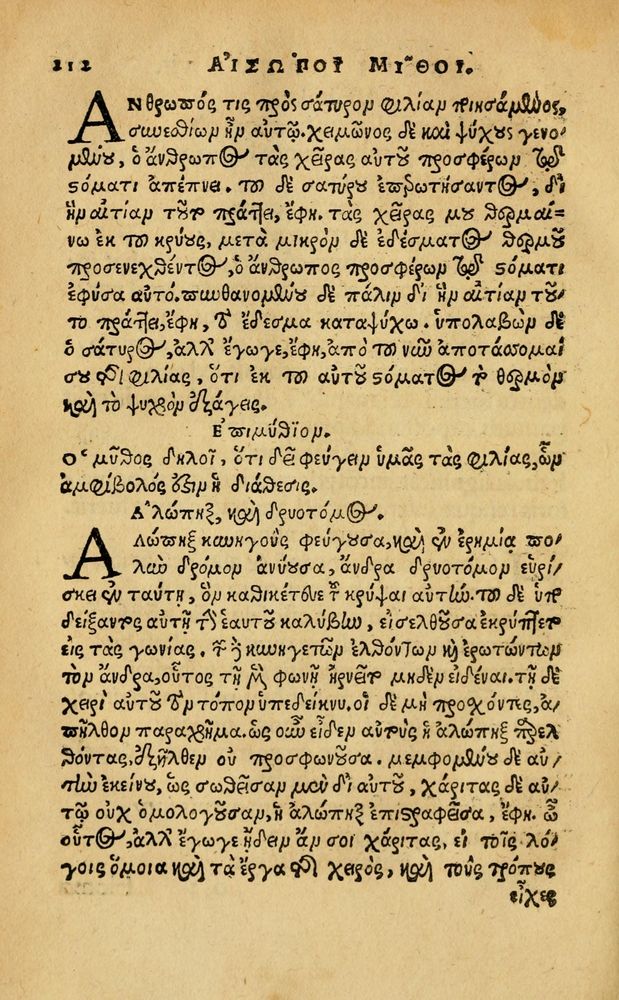 212 ΑἸΣΩ´ΠΟΥ ΜΥ͂ΘΟΙ.
ΑΝθρωπός τις πρὸς σάτυρον φιλίαν ποιησάμενος,
συνεσθίων ἦν αὐτῷ. χειμῶνος δὲ καὶ ψύχους γενο-
μένου, ὁ ἄνθρωπος τὰς χεῖρας αὐτοῦ προσφέρων τῷ
στόματι ἀπέπνει. τοῦ δὲ σατύρου ἐπερωτήσαντος, δι'
ἣν αἰτίαν τοῦτο πράττει, ἔφη. τὰς χεῖρας μου θερμαί-
νω ἐκ τοῦ κρύους, μετὰ μικρὸν δὲ ἐδέσματος θερμοῦ
προσενεχθέντος, ὁ ἄνθρωπος προσφέρων τῷ στόματι
ἐφύσα αὐτό. πυνθανομένου δὲ πάλιν δι' ἣν αἰτίαν τοῦ-
το πράττει, ἔφη, τὸ ἔδεσμα καταψύχω. ὑπολαβὼν δὲ
ὁ σάτυρος, ἀλλ' ἔγωγε, ἔφη, ἀπὸ τοῦ νῦν ἀποτάσσομαί
σου τῆς φιλίας, ὅτι ἐκ τοῦ αὐτοῦ στόματος τὸ θερμὸν
καὶ τὸ ψυχρὸν ἐξάγεις.
Ἐπιμύθιον.
Ὁ μῦθος δηλοῖ, ὅτι δεῖ φεύγειν ὑμᾶς τὰς φιλίας, ὧν
ἀμφίβολός ἐστιν ἡ διάθεσις.
Ἀλώπηξ, καὶ δρυοτόμος.
ΑΛώπηξ κυνηγοὺς φεύγουσα, καὶ ἐν ἐρημίᾳ πο-
λὺν δρόμον ἀνύουσα, ἄνδρα δρυοτόμον εὑρί-
σκει ἐν ταύτῃ, ὃν καθικέτευε τοῦ κρύψαι αὐτήν. τοῦ δὲ ὑπο
δείξαντος αὐτῇ τὴν ἑαυτοῦ καλύβην, εἰσελθοῦσα ἐκρύπτετο
εἰς τὰς γωνίας. τῶν δὲ κυνηγετῶν ἐλθόντων καὶ ἐρωτώντων
τὸν ἄνδρα, οὗτος τῇ μὲν φωνῇ ἠρνεῖτο μηδὲν εἰδέναι. τῇ δὲ
χειρὶ αὐτοῦ τὸν τόπον ὑπεδείκνυ, οἱ δὲ μὴ προσχόντες, ἀ-
πῆλθον παραχρῆμα. ὡς οὖν εἶδεν αὐτοὺς ἡ ἀλώπηξ παρελ
θόντας, ἐξῆλθεν οὐ προσφωνοῦσα. μεμφομένου δὲ αὐ-
τὴν ἐκείνου, ὡς σωθεῖσαν μὲν δι' αὐτοῦ, χάριτας δὲ αὐ-
τῷ οὐχ ὁμολογοῦσαν, ἡ ἀλώπηξ ἐπιστραφεῖσα, ἔφη. ὦ
οὗτος, ἀλλ' ἔγωγε ᾔδειν ἄν σοι χάριτας, εἰ τοῖς λό-
γοις ὅμοια καὶ τὰ ἔργα τῆς χειρὸς, καὶ τοὺς τρόπους
εἶχες